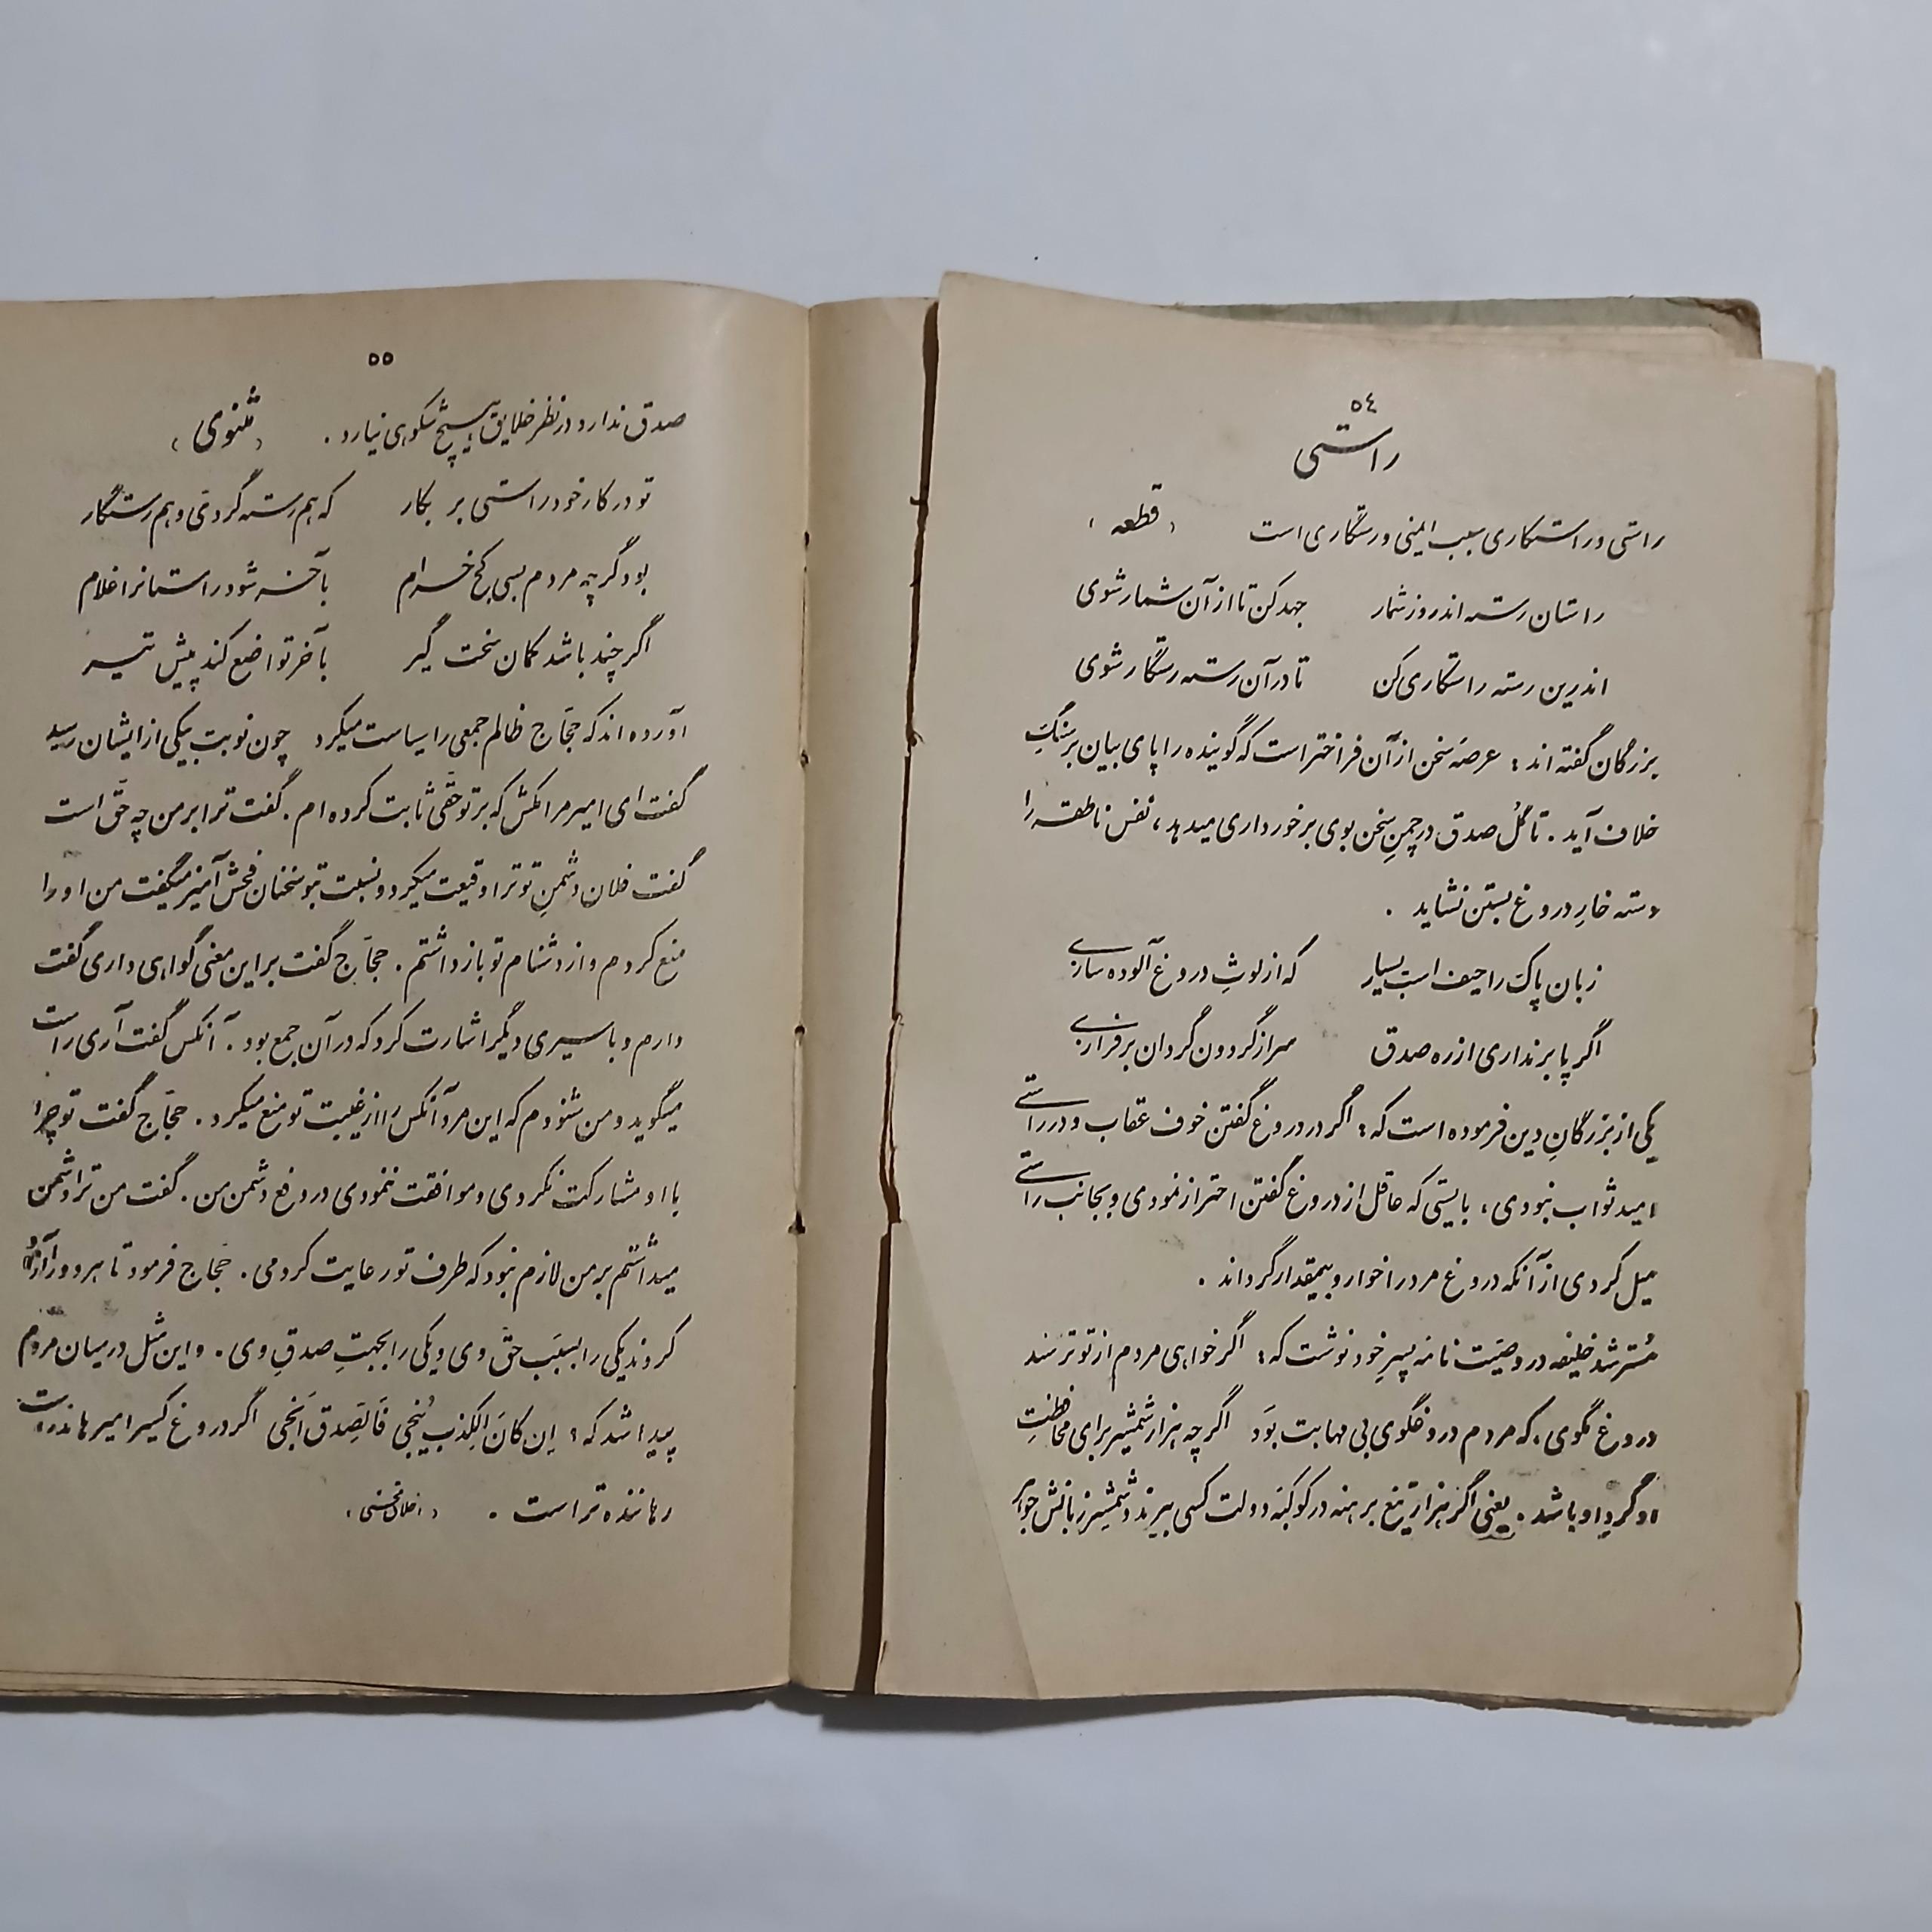 ٥٤
راستی
راستی و راستکاری سبب ایمنی و رستگاری است (قطعه)
راستان رسته اند روز شمار جهد کن تا از آن شمار شوی
اندرین رسته راستکاری کن تا در آن رسته رستگار شوی
بزرگان گفته اند: عرصهٔ سخن از آن فراختر است که گوینده را پای بیان بر سنگِ
خلاف آید. تا گُل صدق در چمنِ سخن بوی برخورداری میدهد، نفس ناطقه را
دسته خارِ دروغ بستن نشاید.
زبان پاک را حیف است بسیار که از لوثِ دروغ آلوده سازی
اگر پا بر نداری از ره صدق سر از گردون گردان بر فرازی
یکی از بزرگانِ دین فرموده است که: اگر در دروغ گفتن خوف عقاب و در راستی
امید ثواب نبودی، بایستی که عاقل از دروغ گفتن احتراز نمودی و بجانب راستی
میل کردی از آنکه دروغ مرد را خوار و بیمقدار گرداند.
مُسترشد خلیفه در وصیّت نامه پسرِ خود نوشت که: اگر خواهی مردم از تو ترسند
دروغ مگوی، که مردم دروغگوی بی مهابت بوَد اگر چه هزار شمشیر برای محافظتِ
او گردِ او باشد. یعنی اگر هزار تیغ برهنه در کوکبهٔ دولت کسی ببرند و شمشیر زبانش جواهر
٥٥
صدق ندارد در نظر خلایق هیچ شکوهی نیارد. (مثنوی)
تو در کار خود راستی بر بکار که هم رسته گردی و هم رستگار
بود گر چه مردم بسی کج خرام بآخر شود راستانرا غلام
اگر چند باشد کمان سخت گیر بآخر تواضع کند پیش تیر
آورده اند که حجّاج ظالم جمعی را سیاست میکرد چون نوبت بیکی از ایشان رسید
گفت ای امیر مرا مکش که بر تو حقّی ثابت کرده ام. گفت ترا بر من چه حقّ است
گفت فلان دشمنِ تو ترا وقیعت میکرد و نسبت بتو سخنان فحش آمیز میگفت من او را
منع کردم و از دشنام تو باز داشتم. حجّاج گفت بر این معنی گواهی داری گفت
دارم و باسیری دیگر اشارت کرد که در آن جمع بود. آنکس گفت آری راست
میگوید و من شنودم که این مرد آنکس را از غیبت تو منع میکرد. حجّاج گفت تو چرا
با او مشارکت نکردی و موافقت ننمودی در دفع دشمن من. گفت من ترا دشمن
میداشتم بر من لازم نبود که طرف تو رعایت کردمی. حجّاج فرمود تا هر دو را آزاد
کردند یکی را بسبَب حقّ وی و یکی را بجهتِ صدقِ وی. و این مثل در میان مردم
پیدا شد که: اِن کانَ الکِذب یُنجی فَالصِدق اَنجی اگر دروغ گیر امیر هاننده است
رهاننده تر است. (اخلاق محسنی)